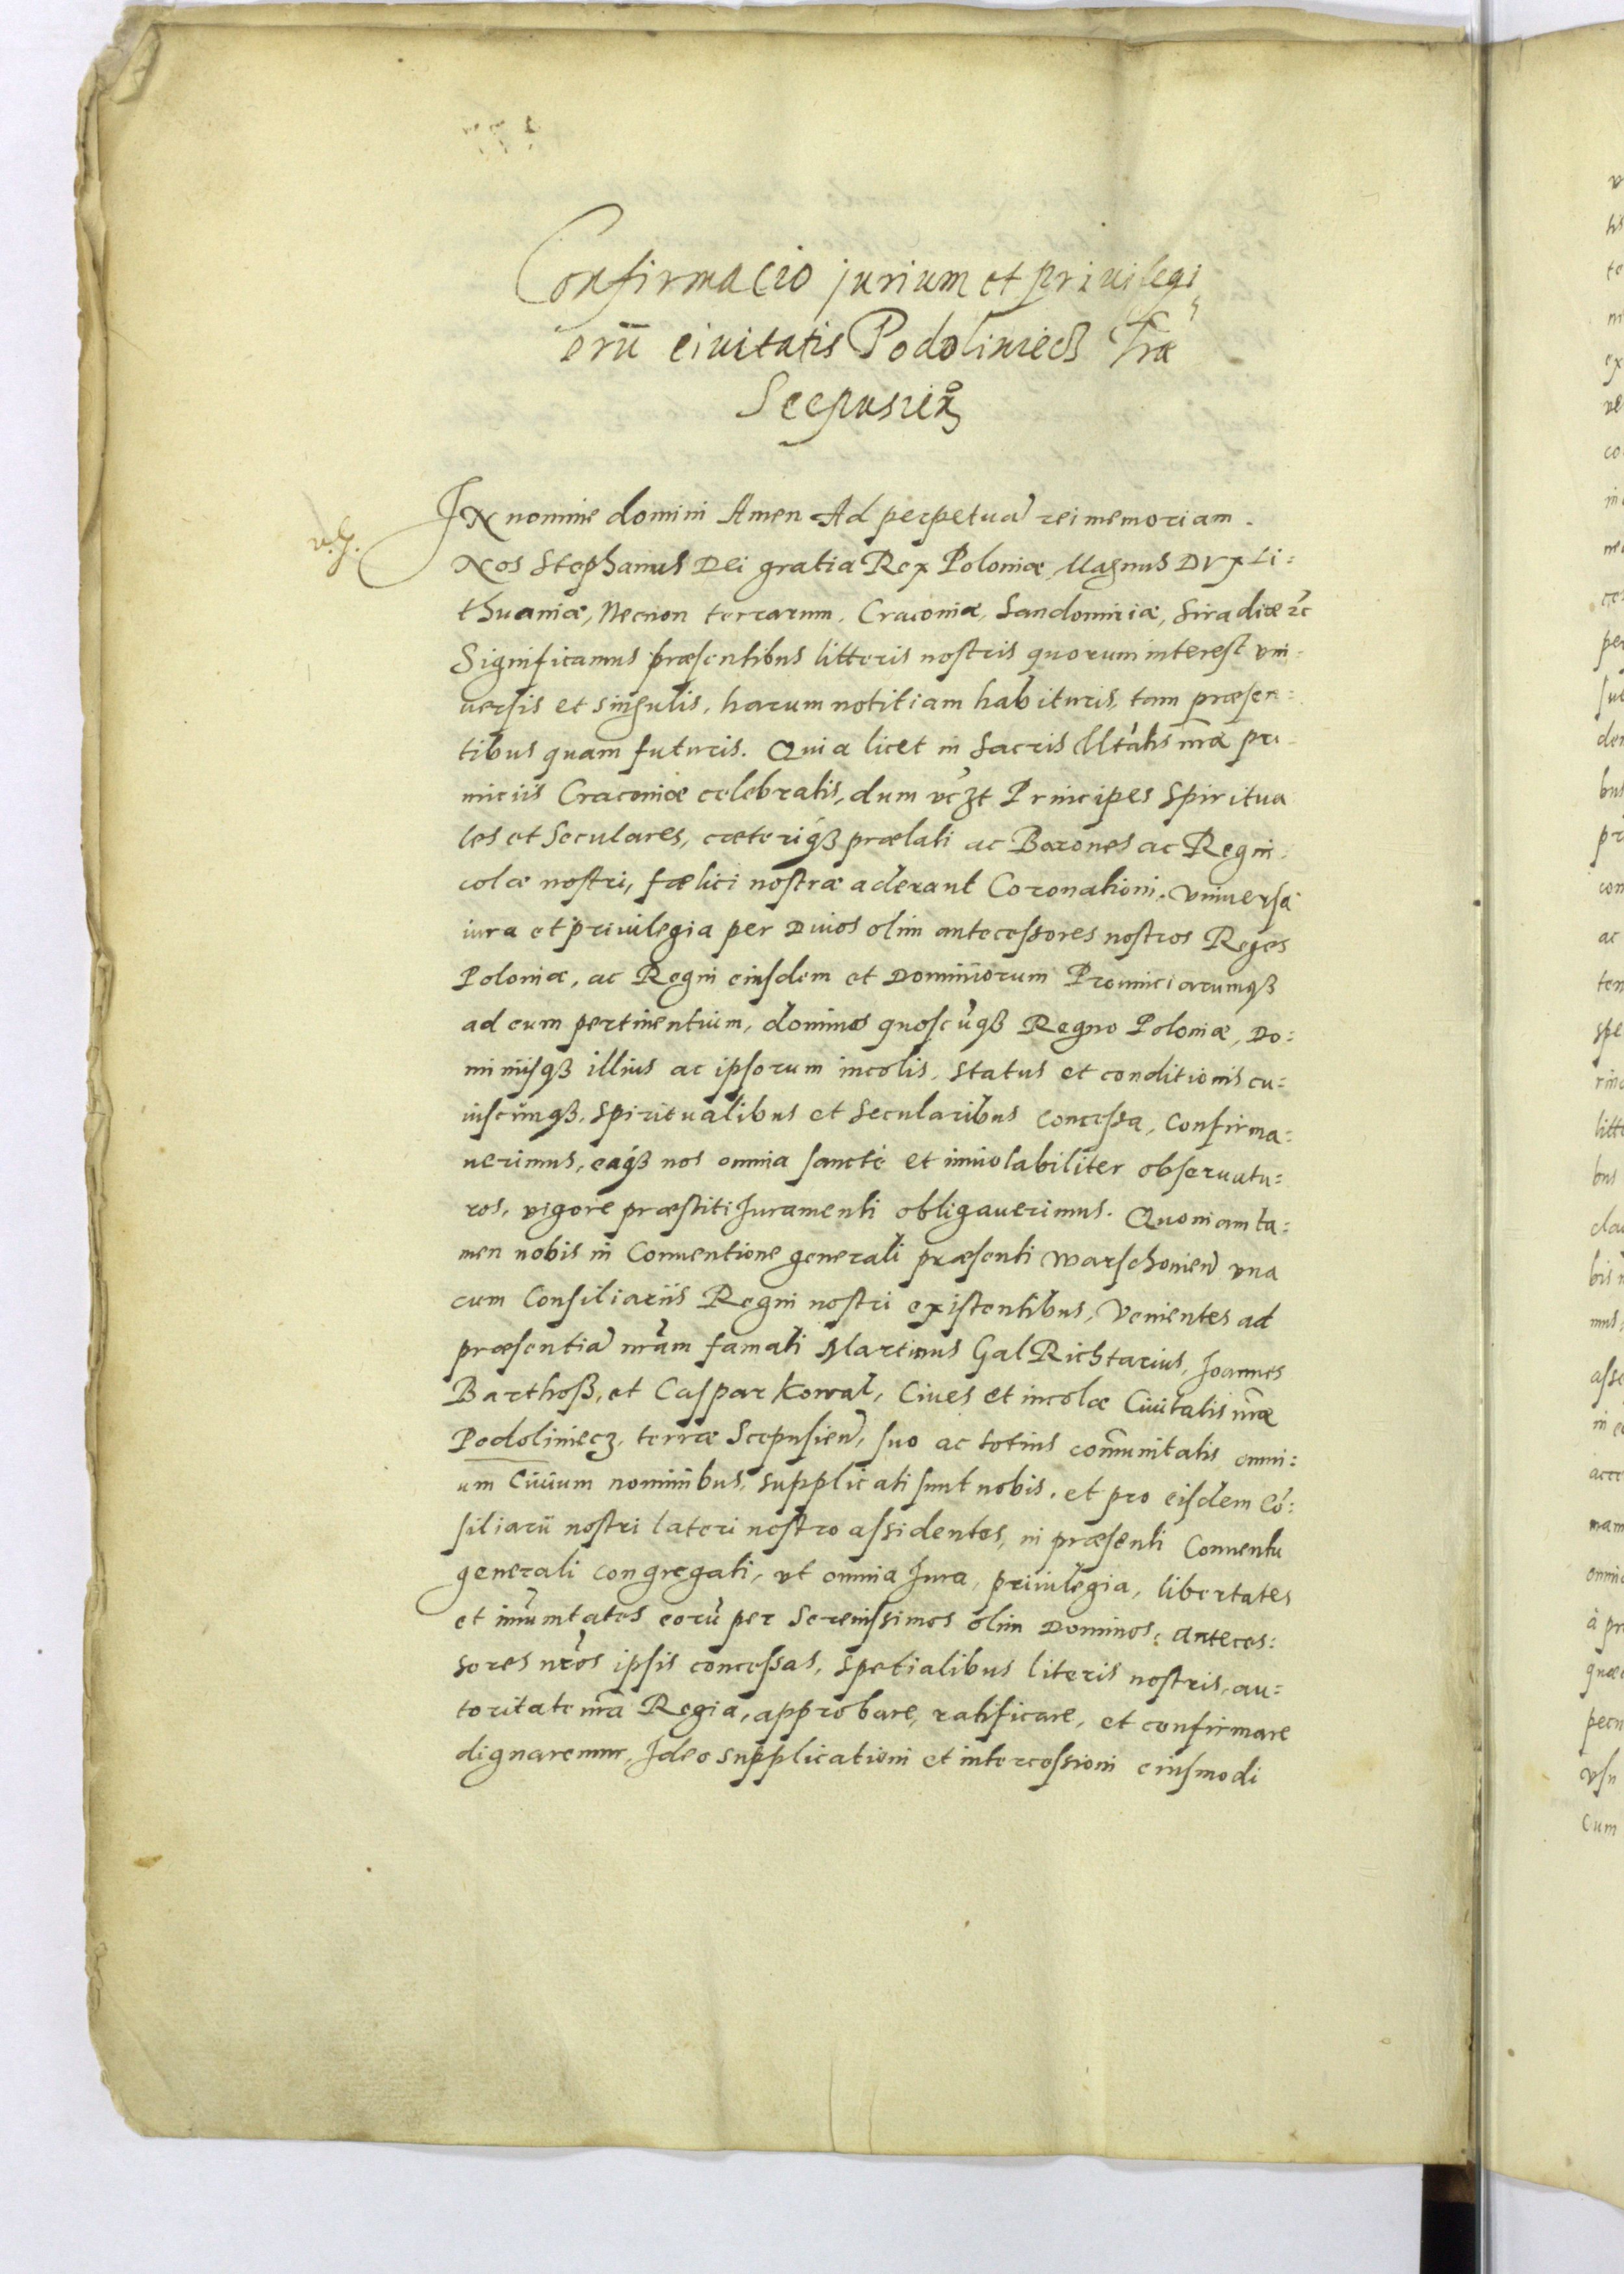 Confirmacio jurium et priuilegi
orū ciuitatis Podoliniecz Tr̃æ
Scepusien̄
v. g.
IN nomine domini Amen Ad perpetuā rei memoriam.
Nos Stephanus Dei gratia Rex Poloniæ, Magnus Dux Li:
thuaniæ, Necnon terrarum, Cracouiæ, Sandomiriæ, Siradiæ &c
Significamus præsentibus litteris nostris quorum interest vni:
uersis et singulis, harum notitiam habituris, tam præsen:
tibus quam futuris. Quia licet in sacris Mtatis nr̃æ pri
miciis Cracouiæ celebratis, dum vczt Principes Spiritua
les et Seculares, cæteriqß prælati ac Barones ac Regni
colæ nostri, fælici nostræ aderant Coronationi, vniuersa
iura et priuilegia per Diuos olim antecessores nostros Reges
Poloniæ, ac Regni eiusdem et Dominiorum Prouinciarumqß
ad eum pertinentium, dominos quoscūqß Regno Poloniæ, Do:
miniisqß illius ac ipsorum incolis, status et conditionis cu:
iuscunqß, spiritualibus et secularibus concessa, confirma:
uerimus, eaqß nos omnia sancte et inuiolabiliter obseruatu:
ros, vigore præstiti Juramenti obligauerimus. Quoniam ta:
men nobis in Conuentione generali præsenti Warschouien̄ vna
cum Consiliariis Regni nostri existentibus, Venientes ad
præsentiā nr̃am famati Martinus Gal Richtarius, Joannes
Barthoß, et Caspar Kowal, Ciues et incolæ Ciuitatis nr̃æ
Podoliniecz, terræ Scepusien̄, suo ac totius com̄unitatis omni:
um Ciuium nominibus, supplicati sunt nobis, et pro eisdem Cō:
siliarii nostri lateri nostro assidentes, in præsenti Conuentu
generali congregati, vt omnia Jura, priuilegia, libertates
et im̄unitates eorū per Serenissimos olim Dominos, anteces:
sores nr̃os ipsis concessas, spetialibus literis nostris, au:
toritate nr̃a Regia, approbare, ratificare, et confirmare
dignaremur, Ideo supplicationi et intercessioni eiusmodi